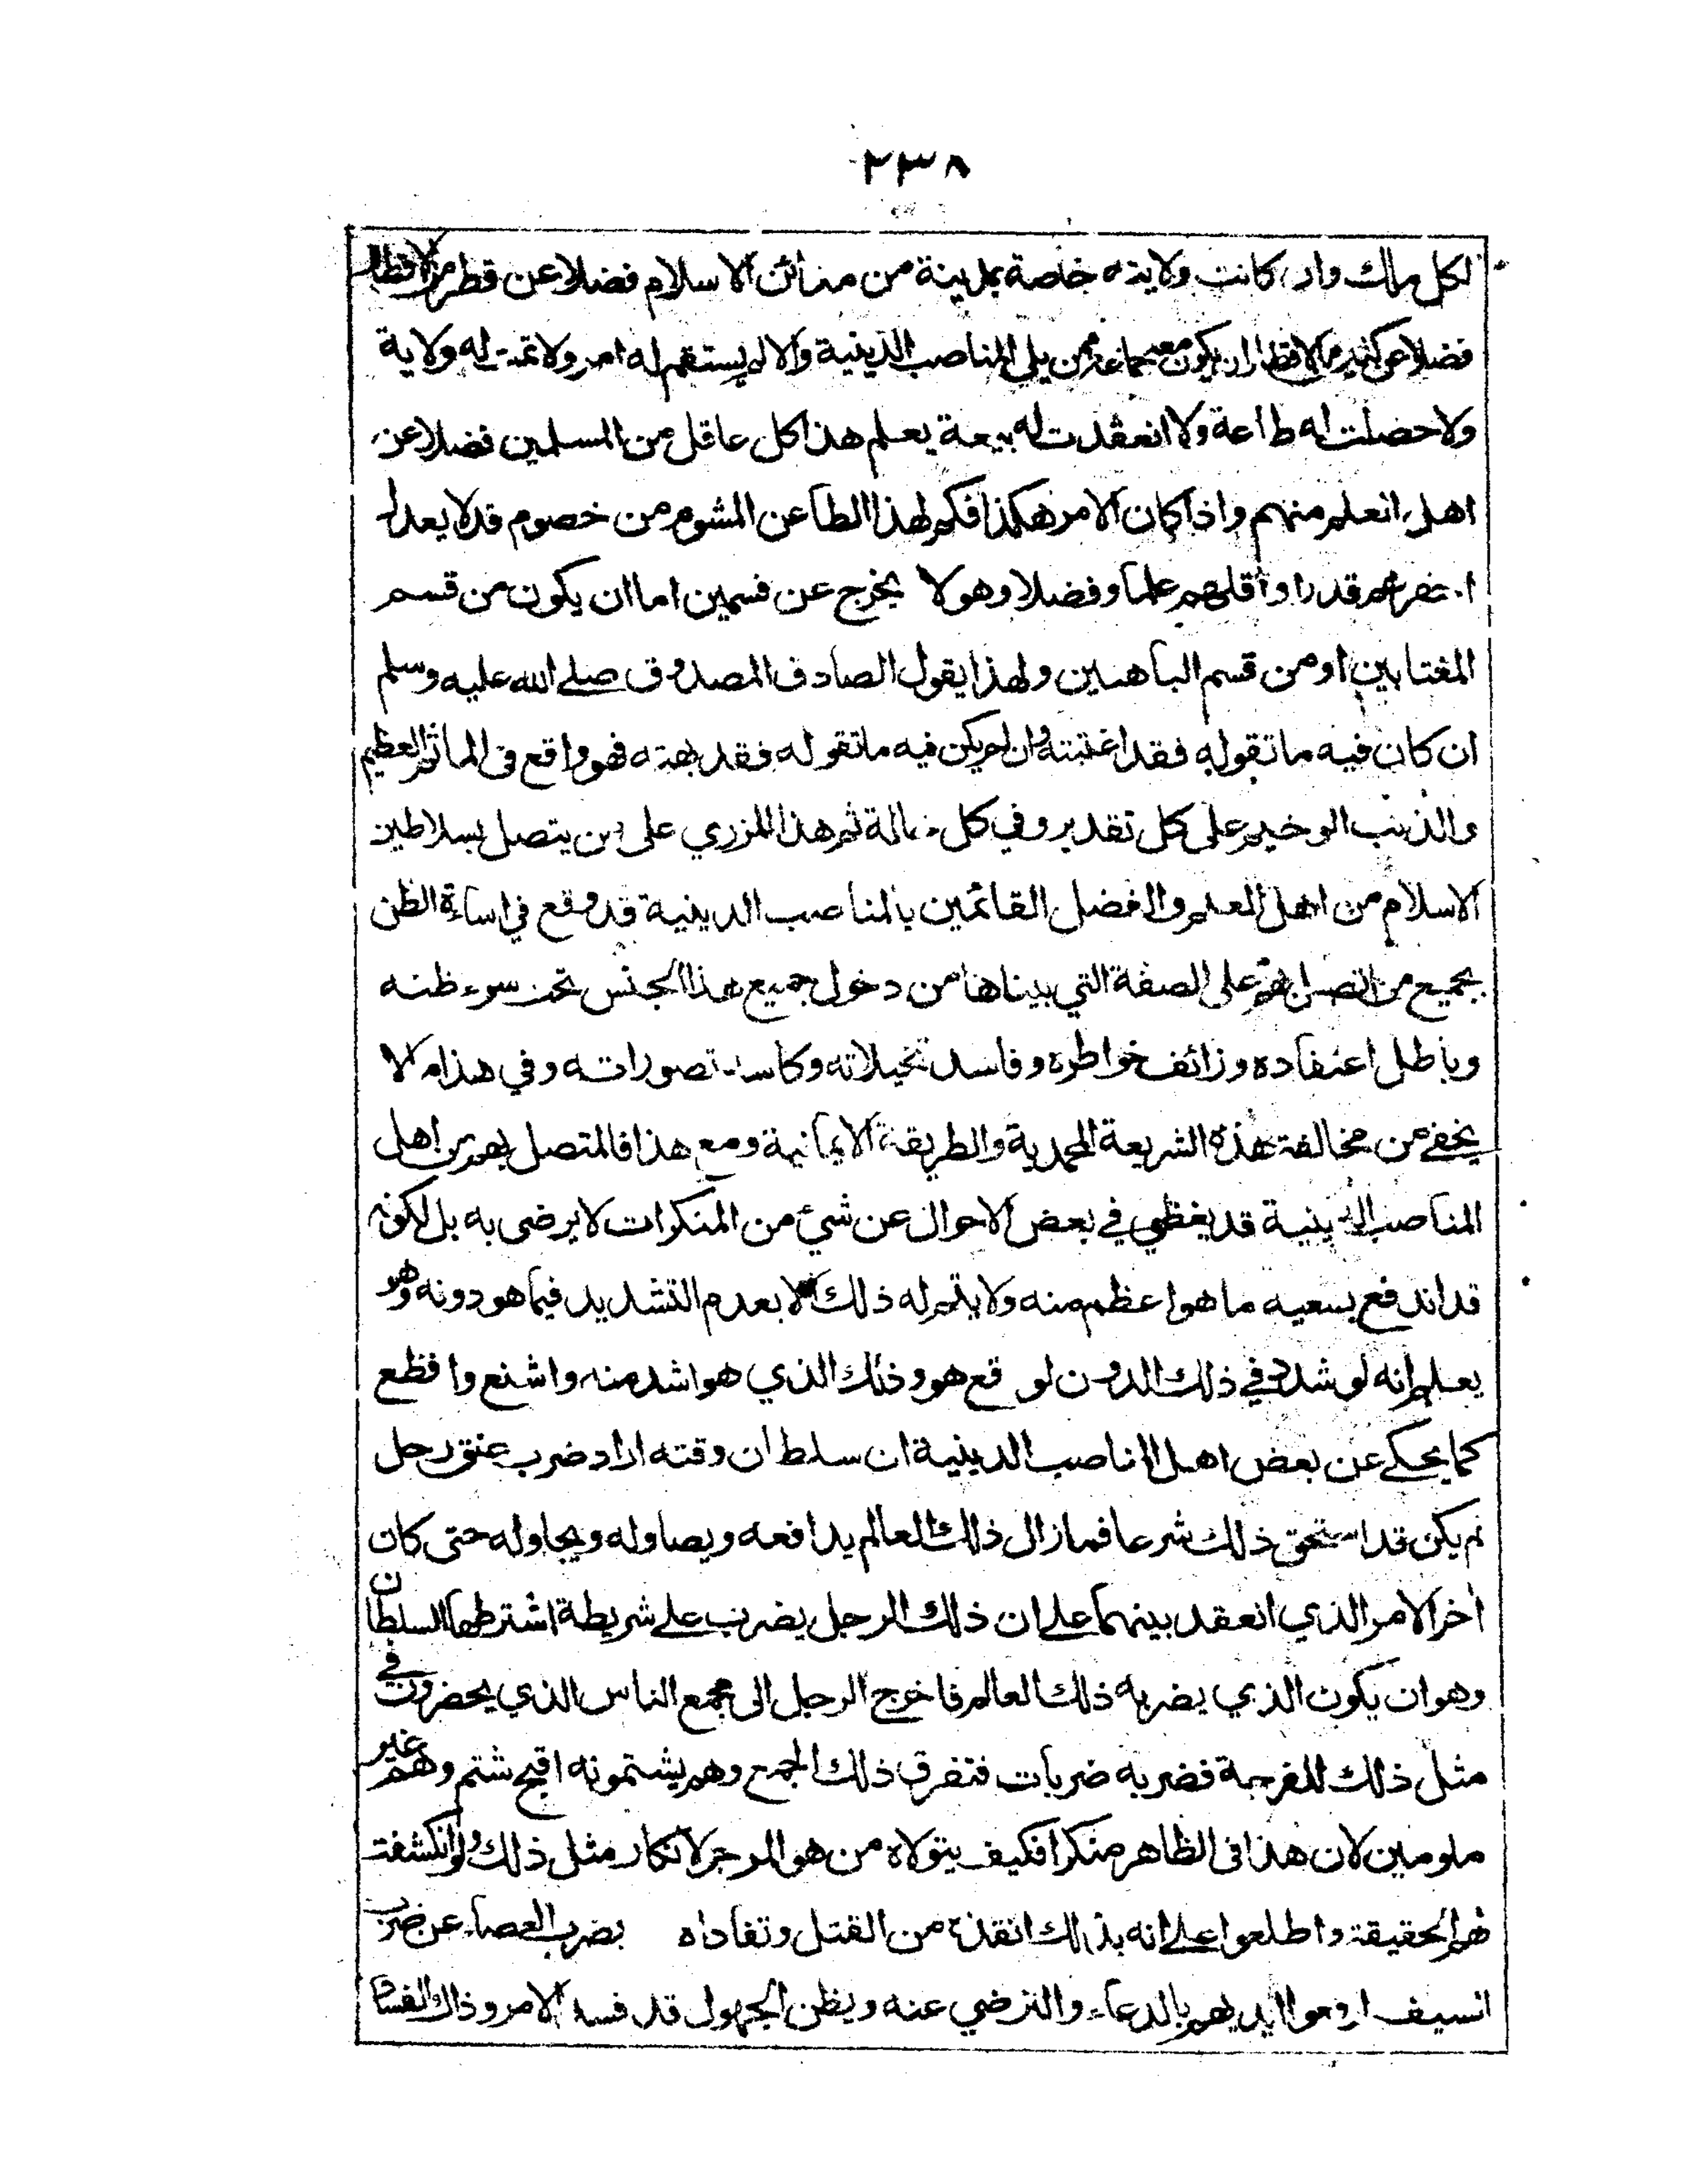 ٢٣٨
لكل ملك وان كانت ولايته خاصة بمدينة من مدائن الاسلام فضلا عن قطر من الاقطار
فضلا عن كثير من الاقطار ان يكون معه جماعة ممن يلي المناصب الدينية والا لم يستقم له امر ولا تمت له ولاية
ولا حصلت له طاعة ولا انعقدت له بيعة يعلم هذا كل عاقل من المسلمين فضلا عن
اهل العلم منهم واذا كان الامر هكذا فكم لهذا الطاعن المشوم من خصوم قد لا يعدل
احقرهم قدرا واقلهم علما وفضلا وهو لا يخرج عن قسمين اما ان يكون من قسم
المغتابين او من قسم الباهتين ولهذا يقول الصادق المصدوق صلے الله عليه وسلم
ان كان فيه ما تقوله فقد اغتبته وان لم يكن فيه ما تقوله فقد بهته فهو واقع فى المأثم العظيم
والذنب الوخيم على كل تقدير وفي كل حالة ثم هذا المزري على من يتصل بسلاطين
الاسلام من اهل العلم والفضل القائمين بالمناصب الدينية قد وقع في اساءة الظن
بجميع من اتصل بهم على الصفة التي بيناها من دخول جميع هذا الجنس تحت سوء ظنه
وباطل اعتقاده وزائف خواطره وفاسد تخيلاته وكاسد تصوراته وفي هذا ما لا
يخفے من مخالفة هذه الشريعة المحمدية والطريقة الايمانية ومع هذا فالمتصل بهم من اهل
المناصب الدينية قد يغظي في بعض الاحوال عن شيء من المنكرات لا يرضى به بل لكونه
قد اندفع بسعيه ما هو اعظم منه ولا يتم له ذلك الا بعدم التشديد فيما هو دونه وهو
يعلم انه لو شدد في ذلك الدون لوقع هو وذلك الذي هو اشد منه واشنع وافظع
كما يحكے عن بعض اهل المناصب الدينية ان سلطان وقته اراد ضرب عنق رجل
لم يكن قد استحق ذلك شرعا فما زال ذلك العالم يدافعه ويصاوله ويجاوله حتى كان
اخر الامر الذي انعقد بينهما علے ان ذلك الرجل يضرب علے شريطة اشترطها السلطان
وهو ان يكون الذي يضربه ذلك العالم فاخرج الرجل الى مجمع الناس الذي يحضرون في
مثل ذلك للفرجة فضربه ضربات فتفرق ذلك الجمع وهم يشتمونه اقبح شتم وهم غير
ملومين لان هذا فى الظاهر منكر فكيف يتولاه من هو المرجو لانكار مثل ذلك ولو انكشفت
لهم الحقيقة واطلعوا علے انه بذلك انقذه من القتل وتفاداه بضرب العصاء عن ضرب
السيف لرفعوا ايديهم بالدعاء والترضي عنه ويظن الجهول قد فسد الامر وذاك الفساد